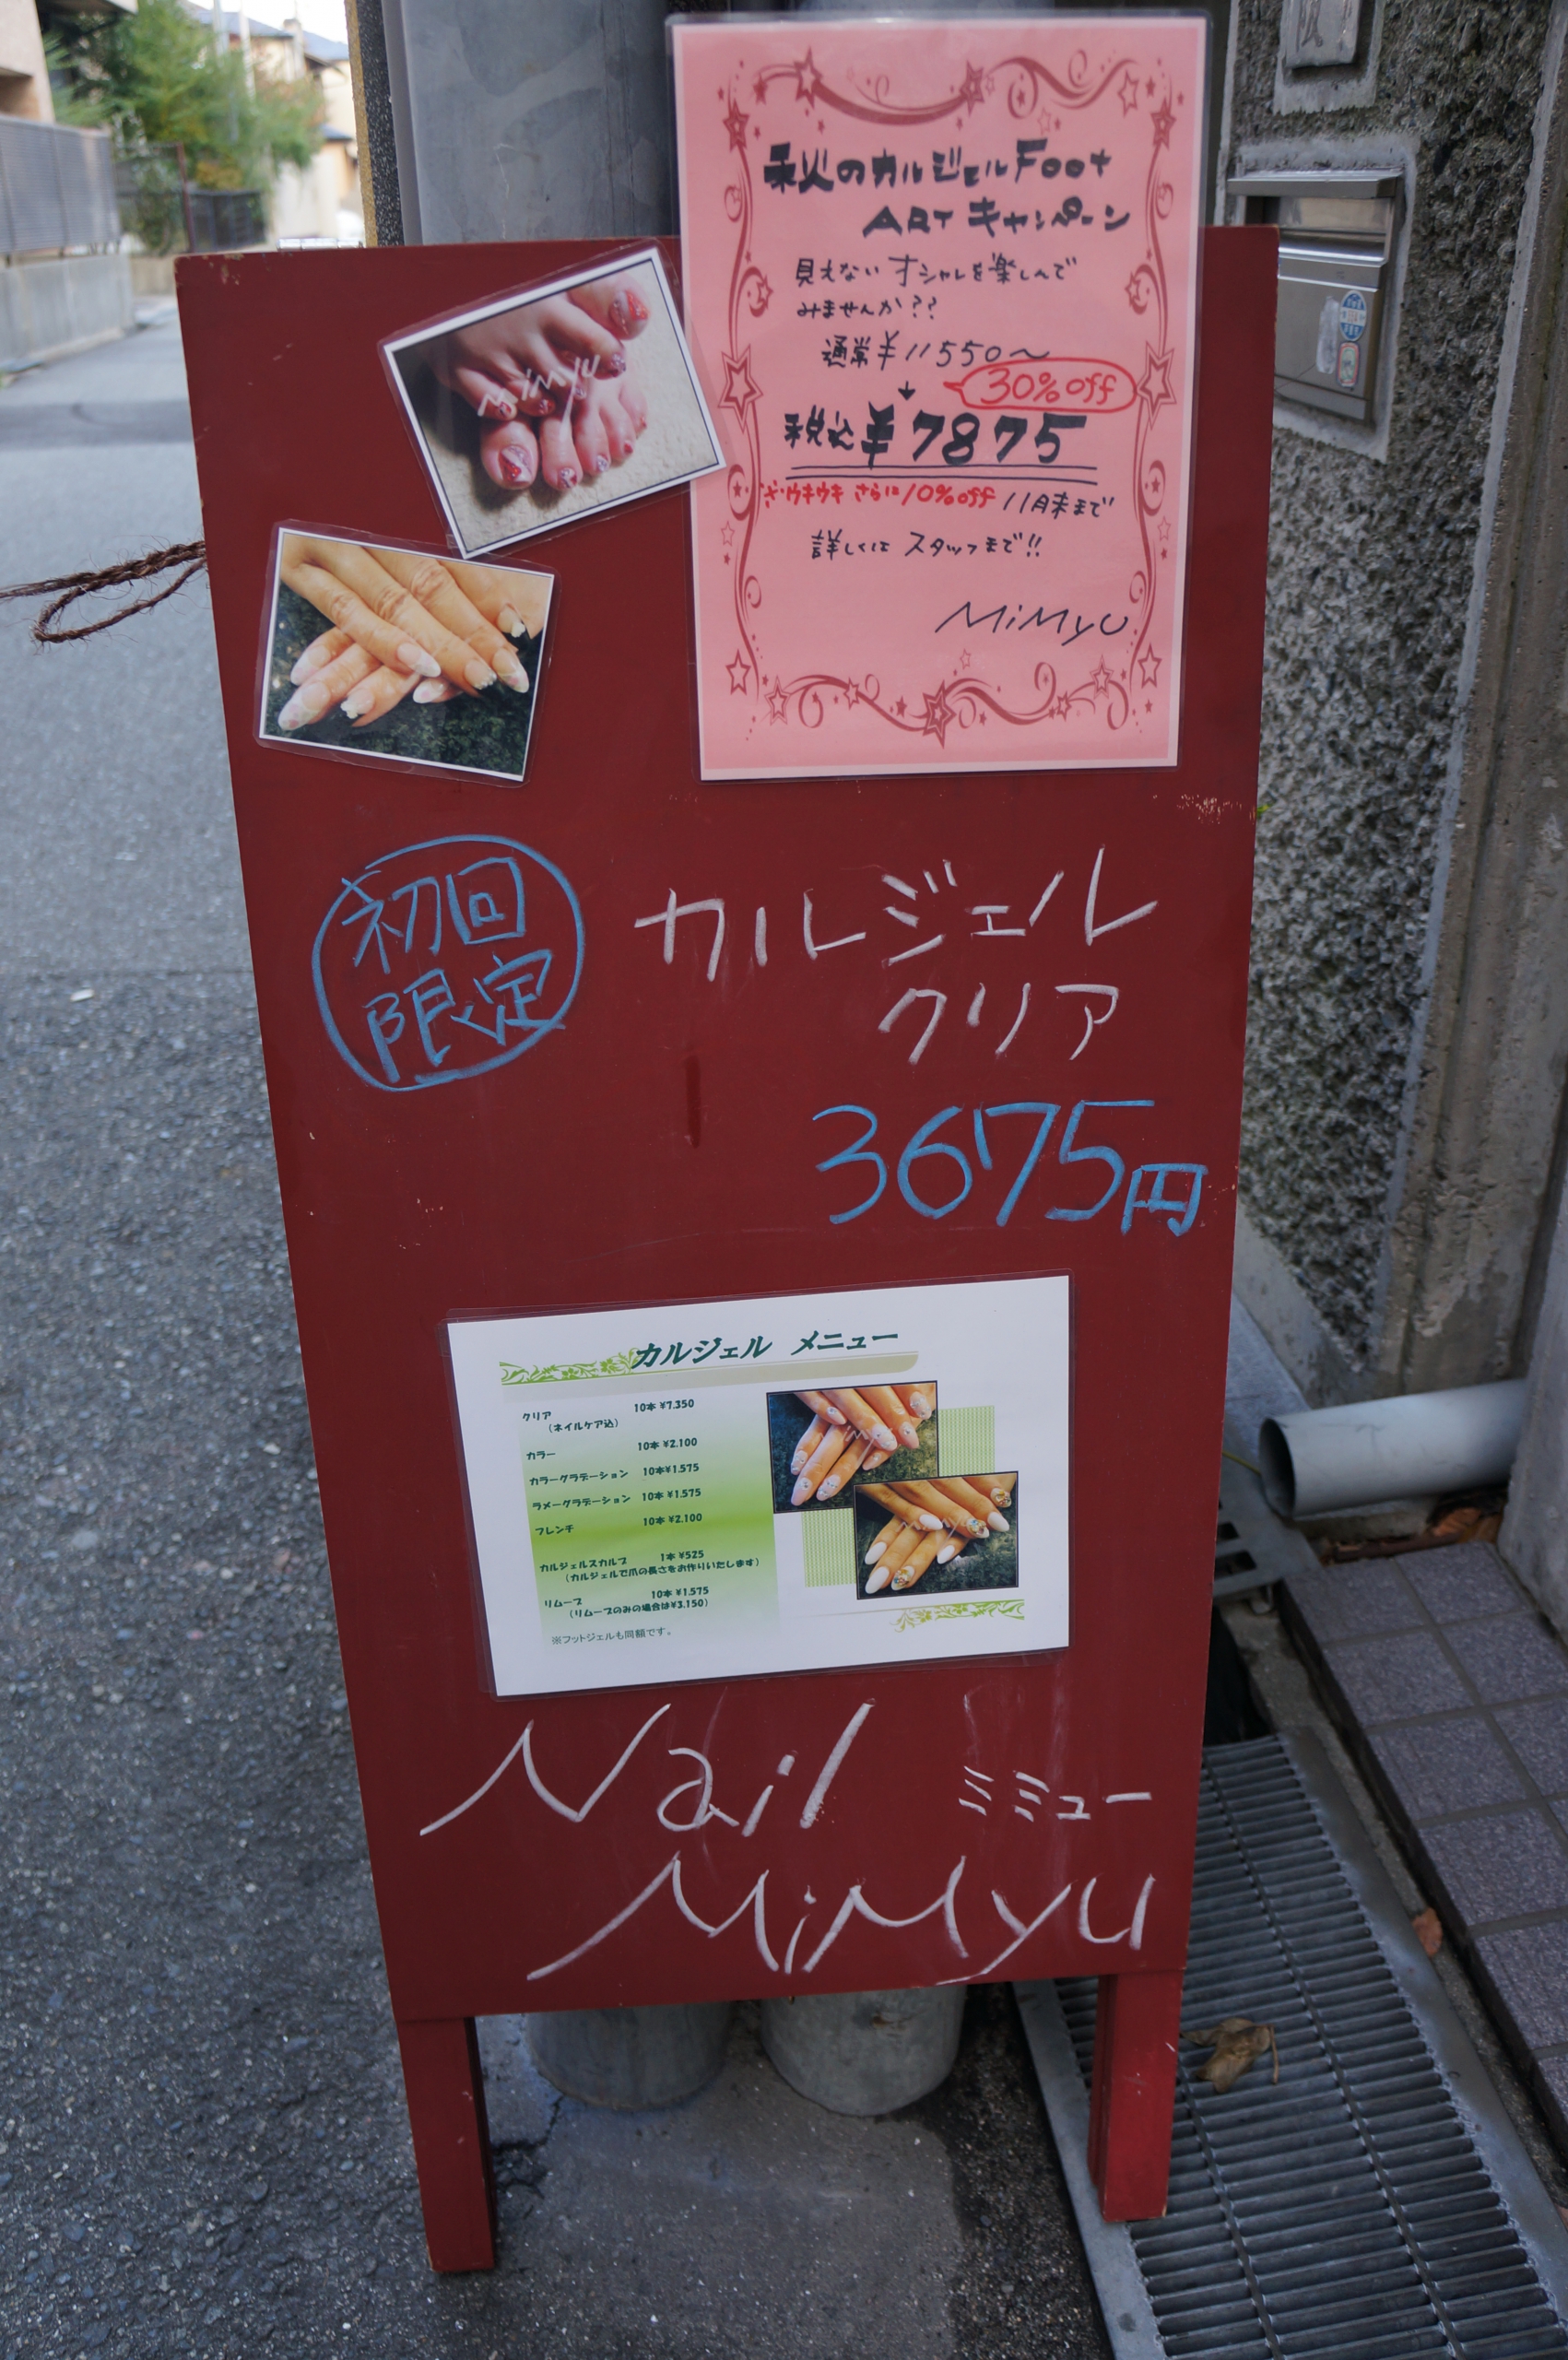 秋のカルジェルFoot
ARTキャンペーン
見えないオシャレを楽しんで
みませんか??
通常¥11550〜
↓ 30%off
税込¥7875
さらに10%off 11月末まで
詳しくは スタッフまで!!
MiMyu
MiMyu
初回
限定
カルジェル
クリア
3675円
カルジェル メニュー
クリア 10本 ¥7.350
(ネイルケア込)
カラー 10本 ¥2.100
カラーグラデーション 10本 ¥1.575
ラメーグラデーション 10本 ¥1.575
フレンチ 10本 ¥2.100
カルジェルスカルプ 1本 ¥525
(カルジェルで爪の長さをお作りいたします)
リムーブ 10本 ¥1.575
(リムーブのみの場合は¥3.150)
※フットジェルも同額です。
Nail ミミュー
MiMyu